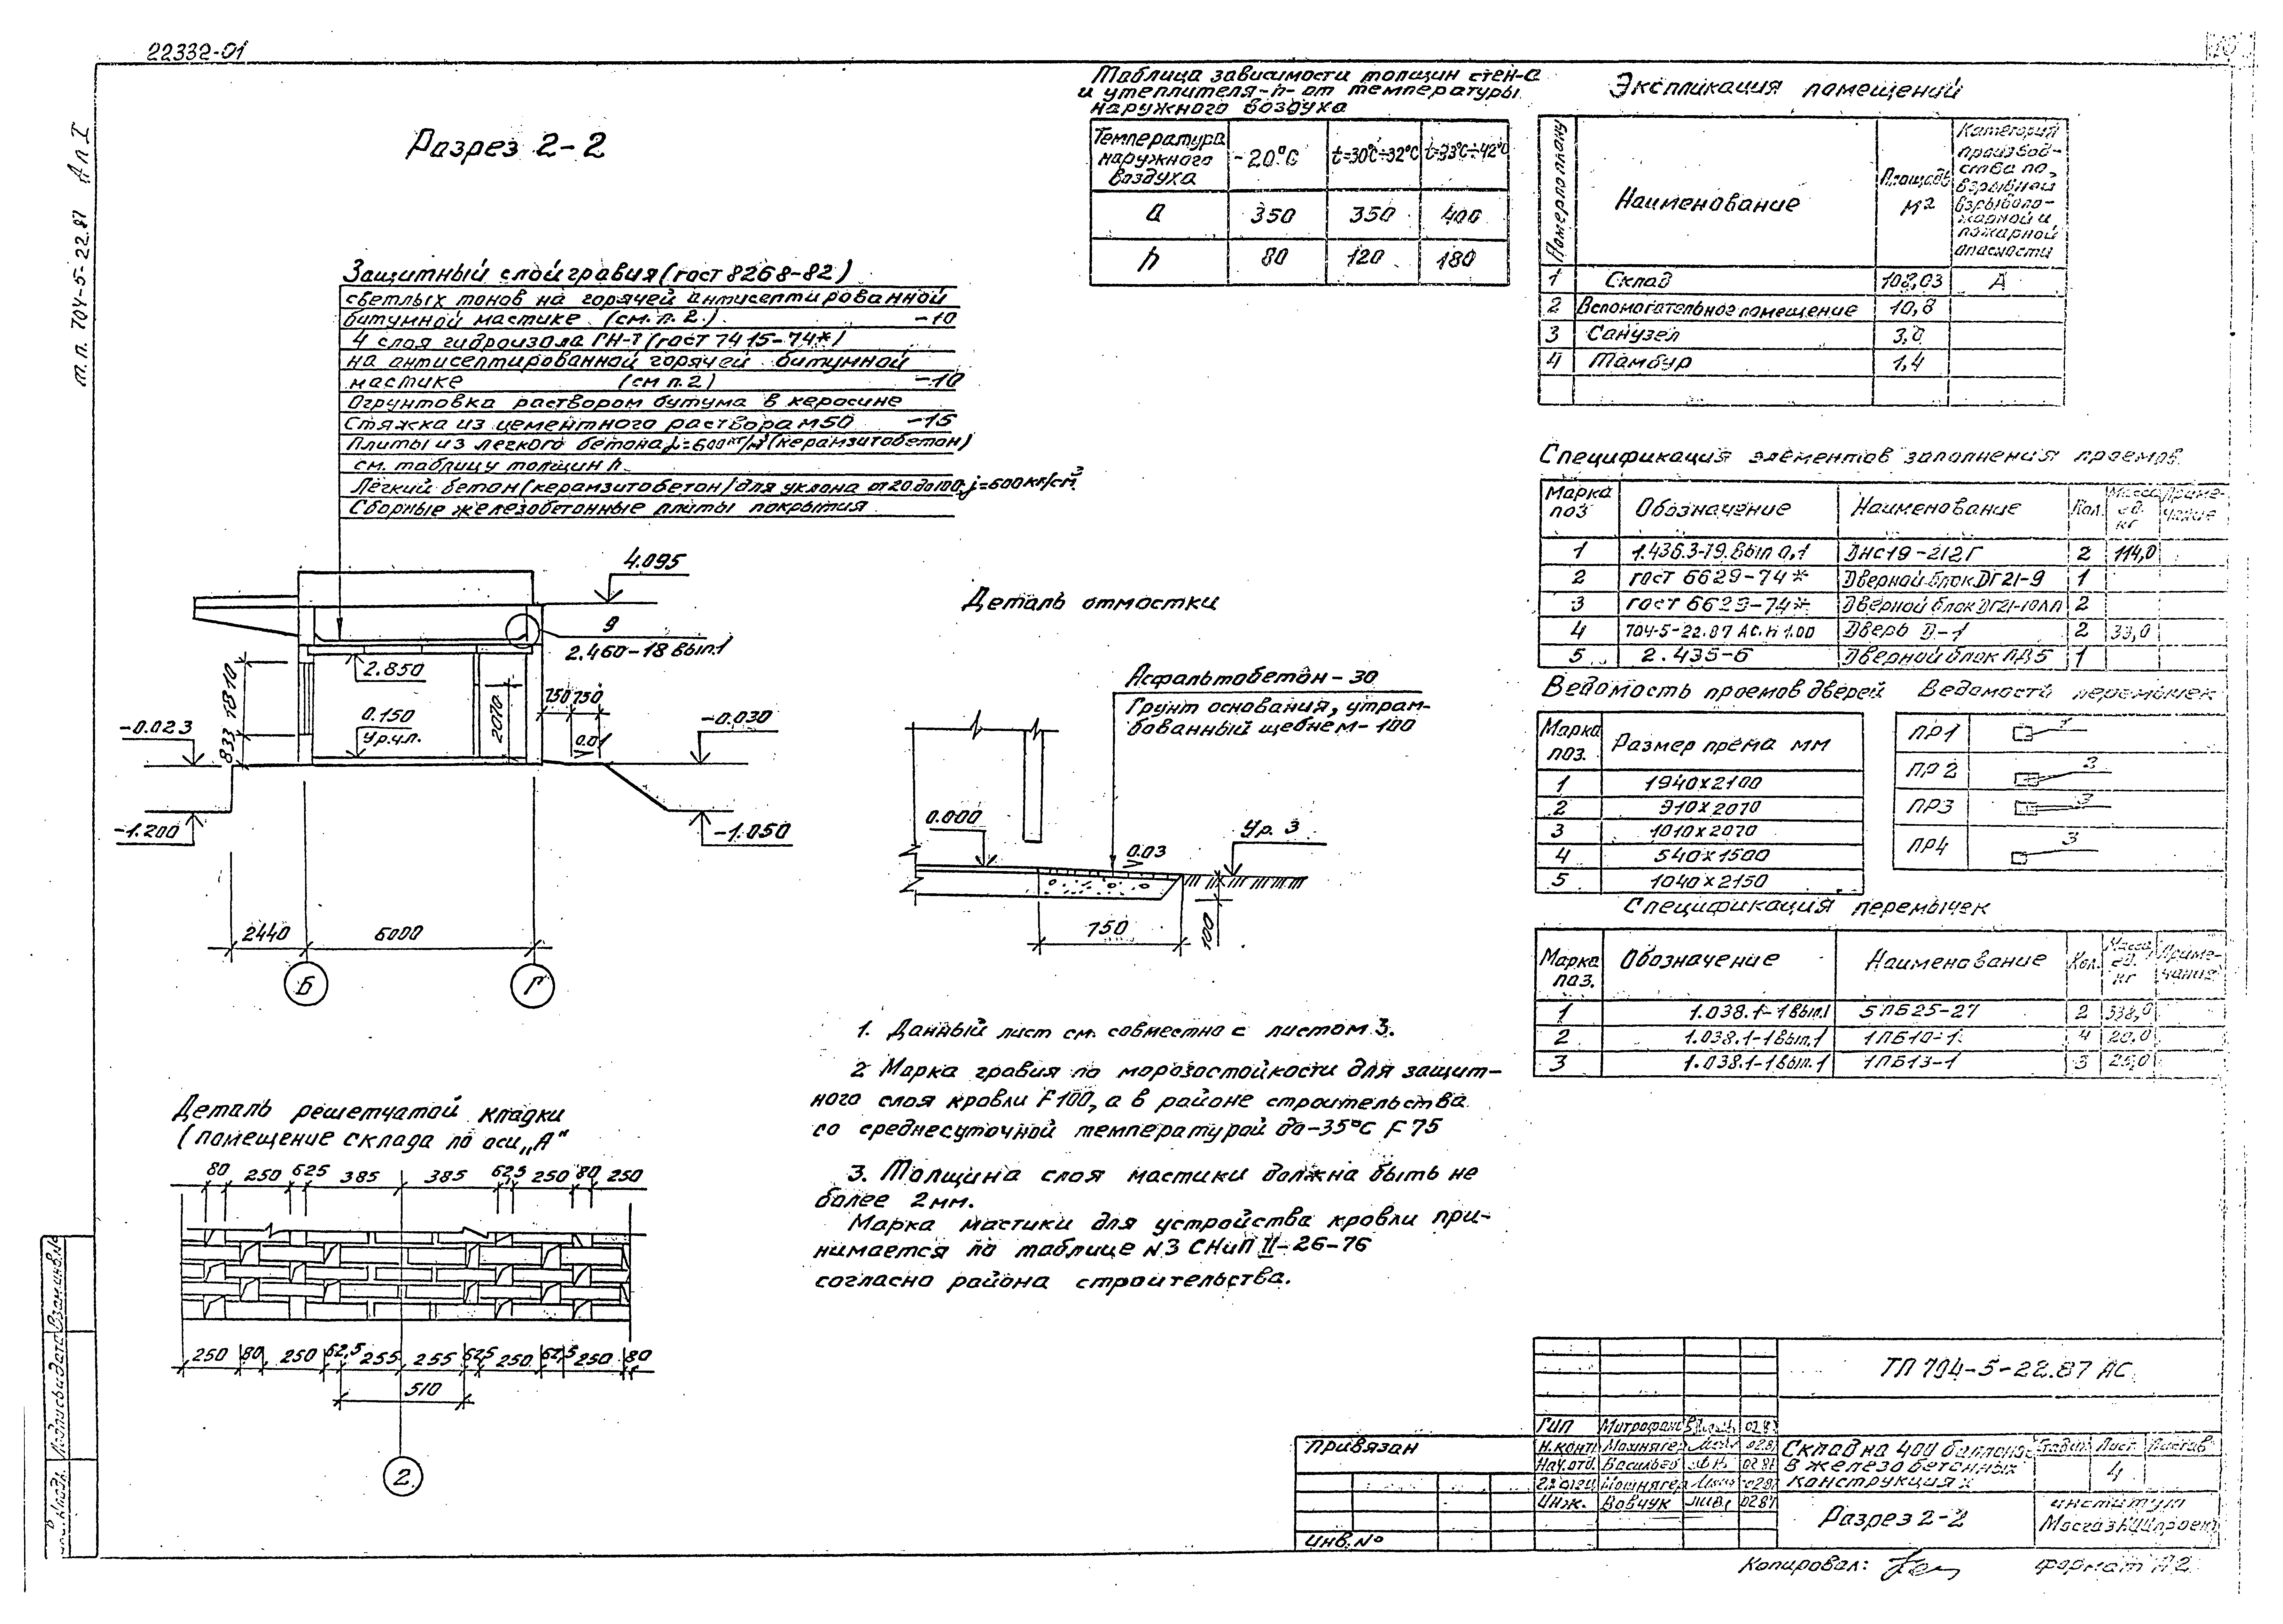 22332-01
10
т.п. 704-5-22.87 Ал I
Разрез 2-2
Защитный слой гравия (гост 8268-82)
светлых тонов на горячей антисептированной
битумной мастике (см. п. 2.) -10
4 слоя гидроизола ГИ-Г (гост 7415-74*)
на антисептированной горячей битумной
мастике (см п. 2) -10
Огрунтовка раствором бутума в керосине
Стяжка из цементного раствора М50 -15
Плиты из легкого бетона j=600кг/м³ (керамзитобетон)
см. таблицу толщин h
Лёгкий бетон (керамзитобетон) для уклона от 20 до 100, j=600кг/см³
Сборные железобетонные плиты покрытия
4.095
9
2.460-18 вып.1
2.850
0.150
Ур.ч.п.
2070
750 750
0.01
1810
833
-0.023
-0.030
-1.200
-1.050
2440 6000
Б Г
Деталь решетчатой кладки
(помещение склада по оси „А"
80 250 625 385 385 62,5 250 80 250
250 80 250 62,5 255 255 62,5 250 62,5 250 80
510
2
Таблица зависимости толщин стен-а
и утеплителя-h- от температуры
наружного воздуха
Температура наружного воздуха -20°С t=30°С÷32°С t=33°С÷42°С
а 350 350 400
h 80 120 180
Деталь отмостки
Асфальтобетон-30
Грунт основания, утрам-
бованный щебнем-100
0.000
Ур. 3
0.03
750
100
1. Данный лист см. совместно с листом 3.
2 Марка гравия по морозостойкости для защит-
ного слоя кровли F100, а в районе строительства
со среднесуточной температурой до-35°С F75
3. Толщина слоя мастики должна быть не
более 2мм.
Марка мастики для устройства кровли при-
нимается по таблице N3 СНиП II-26-76
согласно района строительства.
Экспликация помещений
Номер по плану Наименование Площадь м² Категория производ-ства по взрывной взрывопо-жарной и пожарной опасности
1 Склад 108,03 А
2 Вспомогательное помещение 10,8
3 Санузел 3,0
4 Тамбур 1,4
Спецификация элементов заполнения проемов
Марка поз Обозначение Наименование Кол. Масса ед. кг Приме-чание
1 1.436.3-19.вып 0,1 ДНС19-212Г 2 114,0
2 гост 6629-74* Дверной блок ДГ21-9 1
3 гост 6629-74* Дверной блок ДГ21-10ЛП 2
4 704-5-22.87 АС.И 1.00 Дверь Д-1 2 33,0
5 2.435-6 Дверной блок ПД5 1
Ведомость проемов дверей
Марка поз. Размер према мм
1 1940х2100
2 910х2070
3 1010х2070
4 540х1500
5 1040х2150
Ведомость перемычек
ПР1 1
ПР2 3
ПР3 3
ПР4 3
Спецификация перемычек
Марка поз. Обозначение Наименование Кол. Масса ед. кг Приме-чание
1 1.038.1-1 вып.1 5ПБ25-27 2 338,0
2 1.038.1-1 вып.1 1ПБ10-1 4 20,0
3 1.038.1-1 вып.1 1ПБ13-1 3 25,0
ТП 704-5-22.87 АС
ГИП 02.87
Н.конт. 02.87
Нач.отд. 02.87
Инж. Вовчук 02.87
Склад на 400 баллонов
в железобетонных
конструкциях
Стадия Лист Листов
4
Разрез 2-2
институт
МосгазНИИпроект
Привязан
Инв.№
Взам.инв.№
Подпись и дата
Копировал:
формат А2